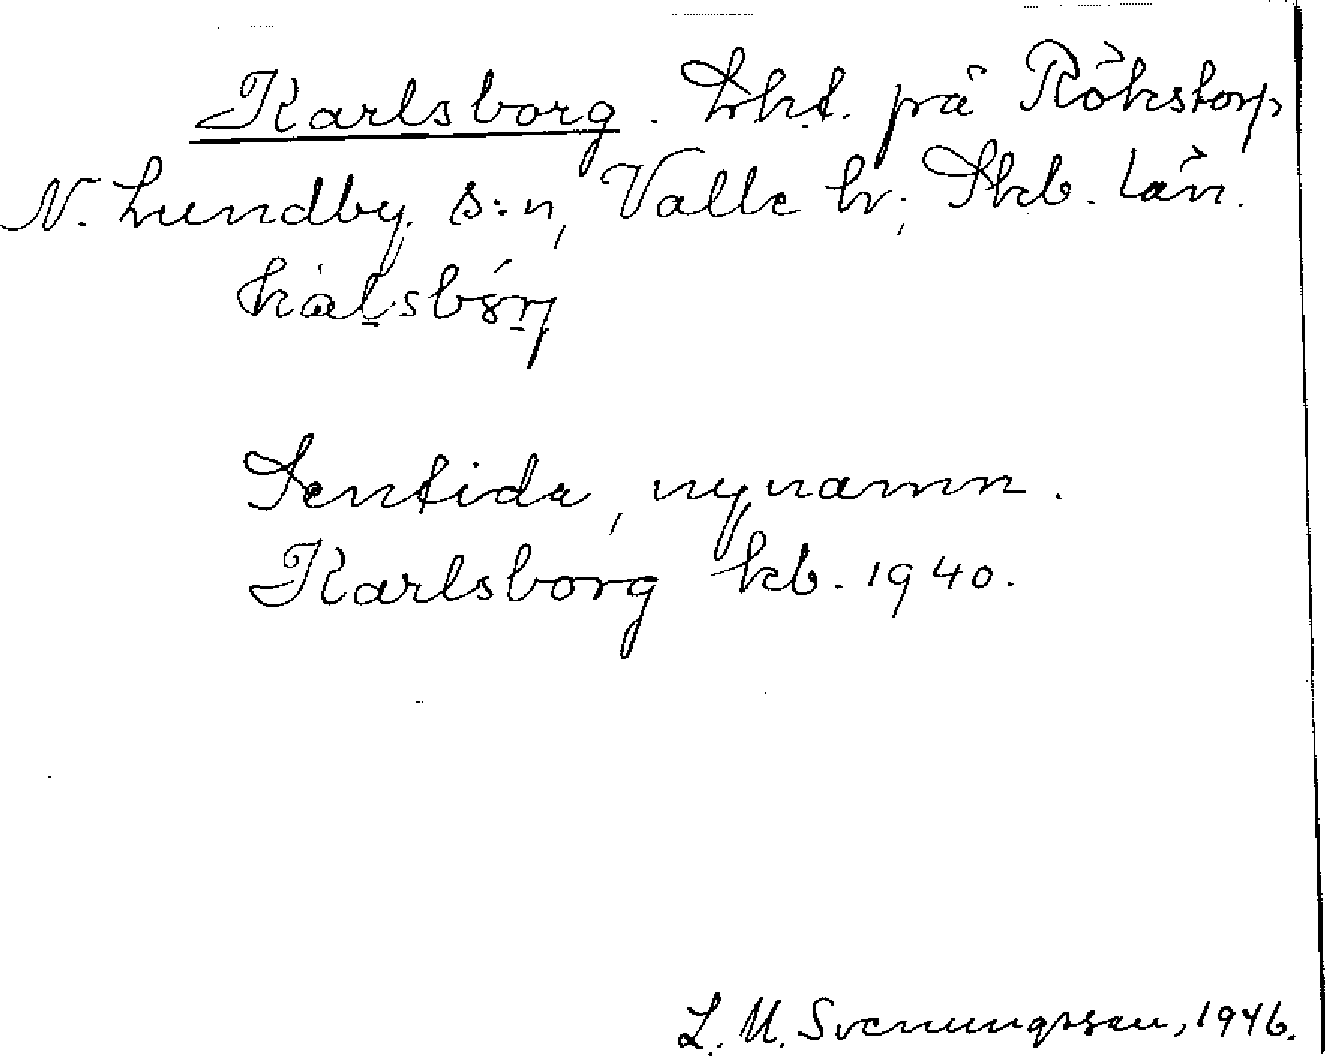 Karlsborg. Lht. på Rökstorp
N. Lundby s:n, Valle hr, Skb. län.
Sentida, nynamn.
Karlsborg kb. 1940.
L. M. Svenungsson, 1946.